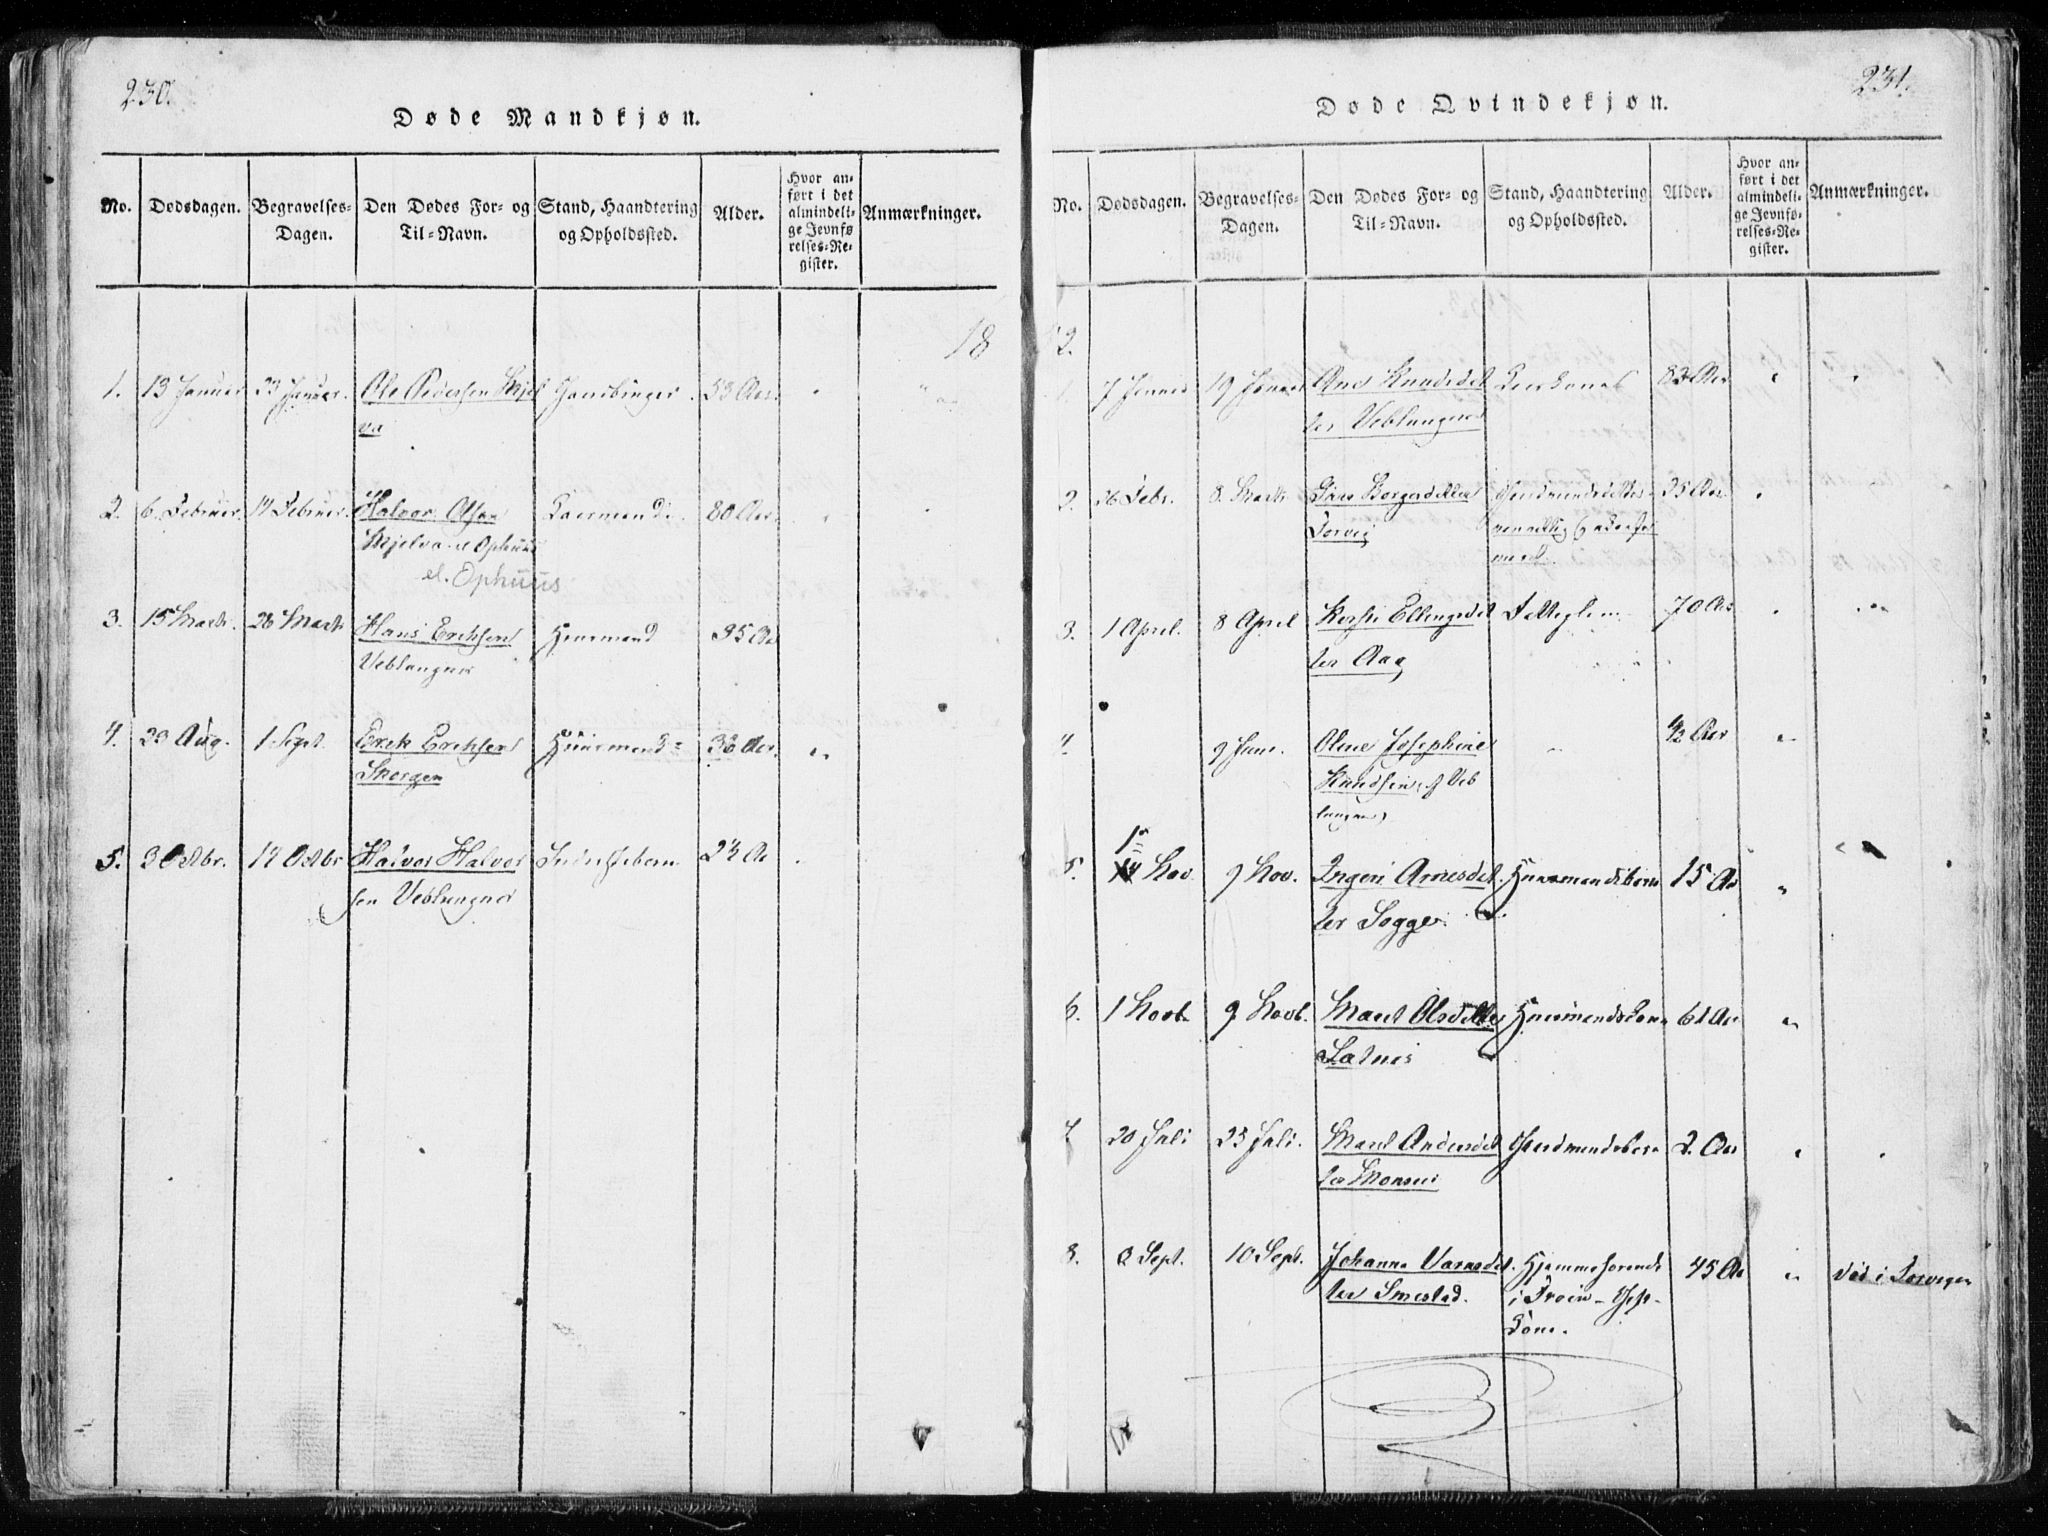 230.
Døde Mandkjøn.
No. Dødsdagen. Begravelses-Dagen. Den Dødes For- og Til-Navn. Stand, Haandtering og Opholdssted. Alder. Hvor anført i det almindelige Jevnførelses-Register. Anmærkninger.
18
1. 13 Januar 23 Januar. Ole Pedersen Mjel 53 Aar.
va
2. 6. Februar. 17 Februar. Halvor Olsen 80 Aar.
Mjelva el Ophuus
el. Ophuus
3. 15 Marts. 26 Marts Hans Erichsen Huusmand 35 Aar
Veblungnes
4. 23 Aug. 1 Sept. Erek Erichsen Huusmand 36 Aar.
Skorgen
5. 3 Octbr. 17 Octbr Halvor Halvor
sen Veblungnes
231.
Døde Qvindekjøn.
No. Dødsdagen. Begravelses-Dagen. Den Dødes For- og Til-Navn. Stand, Haandtering og Opholdssted. Alder. Hvor anført i det almindelige Jevnførelses-Register. Anmærkninger.
2.
1. 7 Januar 19 Januar Ane Knudsdat Aar
ter Veblungnes
2. 26 Febr. 8. Marts Borgersdatter 25 Aar
Torvig
3. 1 April. 8 April Kersti Ellingsdat 70 Aar
ter Aag
4 9 Juni. Oline Josephine ½ Aar
Knudsen, af Veb
lungnes
5. 1 Nov. 9 Nov. Ingeri Arnesdat Huusmandsbarn 15 Aar
ter Sogge.
6. 1 Novb. 9 Novb. Maret Olsdatter Huusmandskone 61 Aar
Sætnes
7 20 Juli 23 Juli. Maret Andersdat Gaardmandsbarn 2. Aar
ter Monsus
8. 2 Sept. 10 Sept. Johanna Varnsdat Hjemmehørende 45 Aar Død i Torvigen
ter Smestad. i